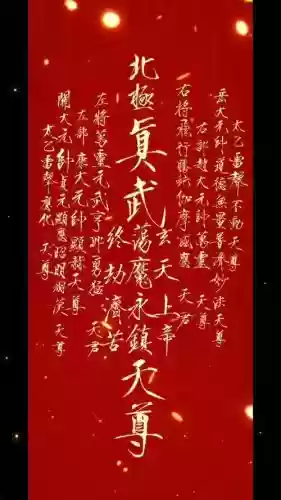 太乙雷聲不動天尊
岳大元帥道德無量普度妙法天尊
右部趙大元帥萬靈 天尊
右將飛行 伽摩威應 天君
玄天上帝
北極眞武蕩魔永鎮天尊
終劫濟苦
左將萬靈元武亨 勇猛 天君
左部康大元帥顯赫天尊
關大元帥真元顯應昭明翊漢天尊
太乙雷聲應化 天尊